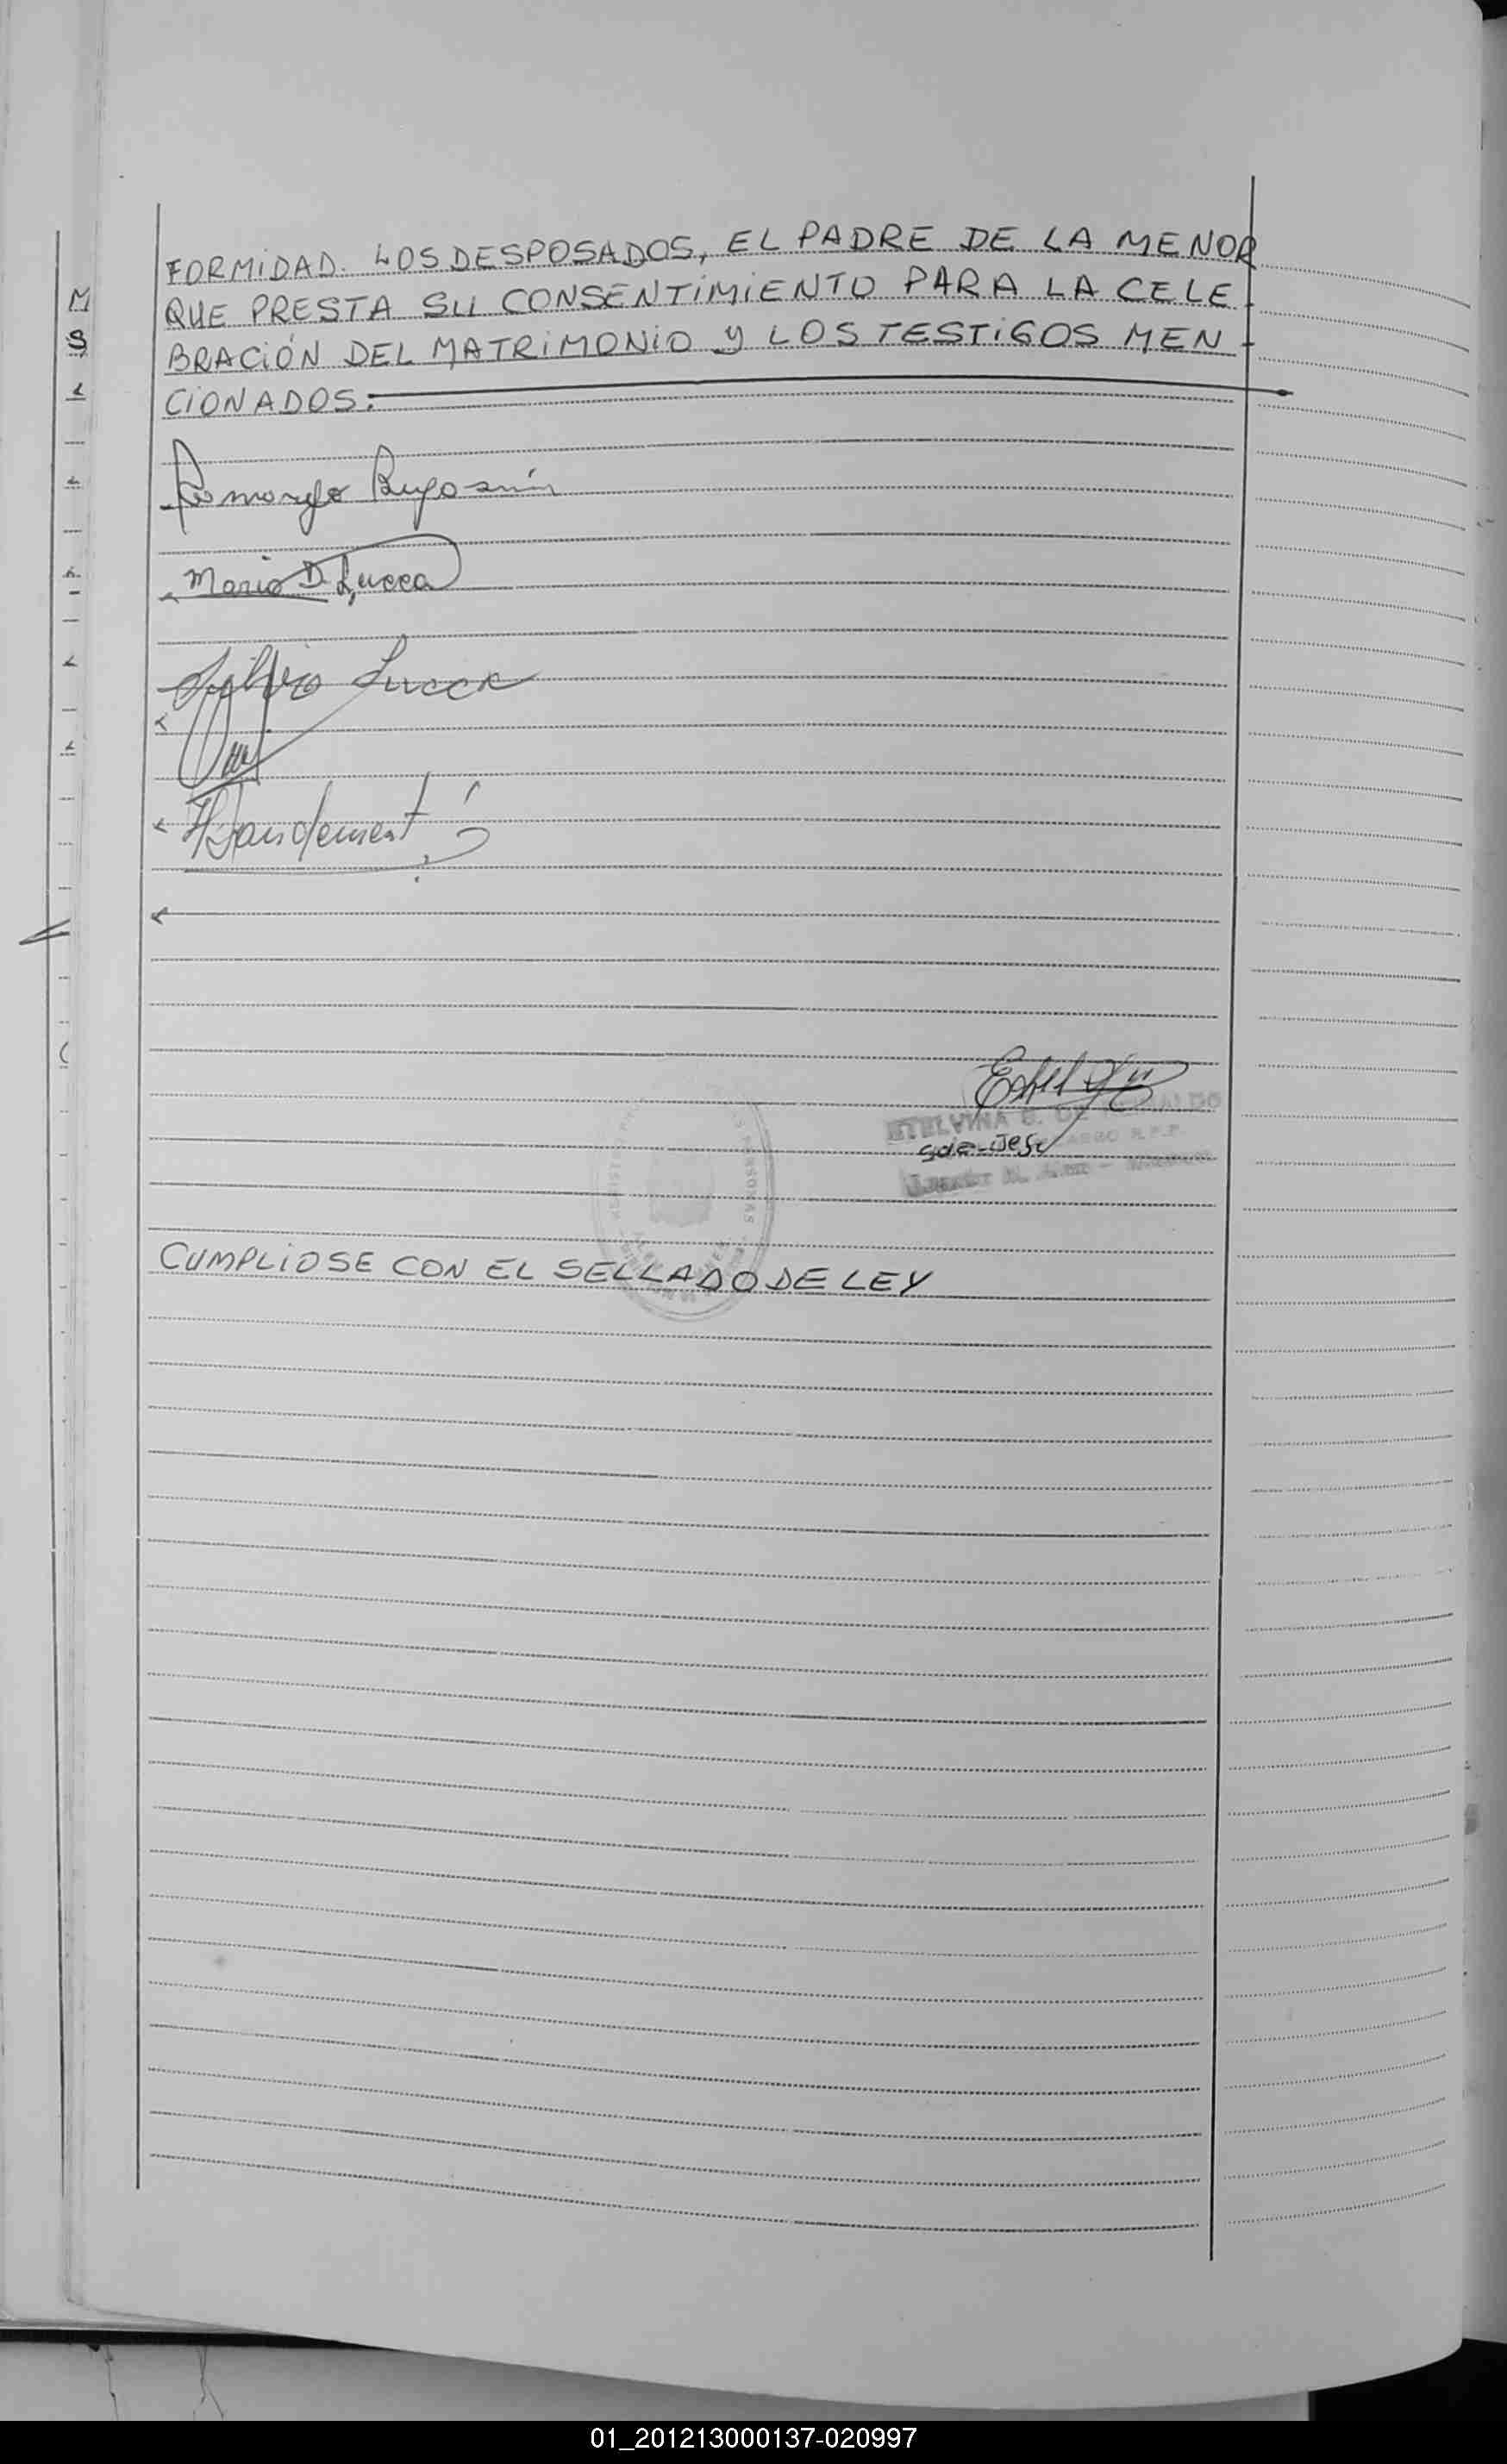 FORMIDAD. LOS DESPOSADOS, EL PADRE DE LA MENOR
QUE PRESTA SU CONSENTIMIENTO PARA LA CELE-
BRACIÓN DEL MATRIMONIO Y LOS TESTIGOS MEN-
CIONADOS.
Mario D. Lucca
Silvio Lucca
ETELVINA S. DE
CUMPLIOSE CON EL SELLADO DE LEY
01_201213000137-020997